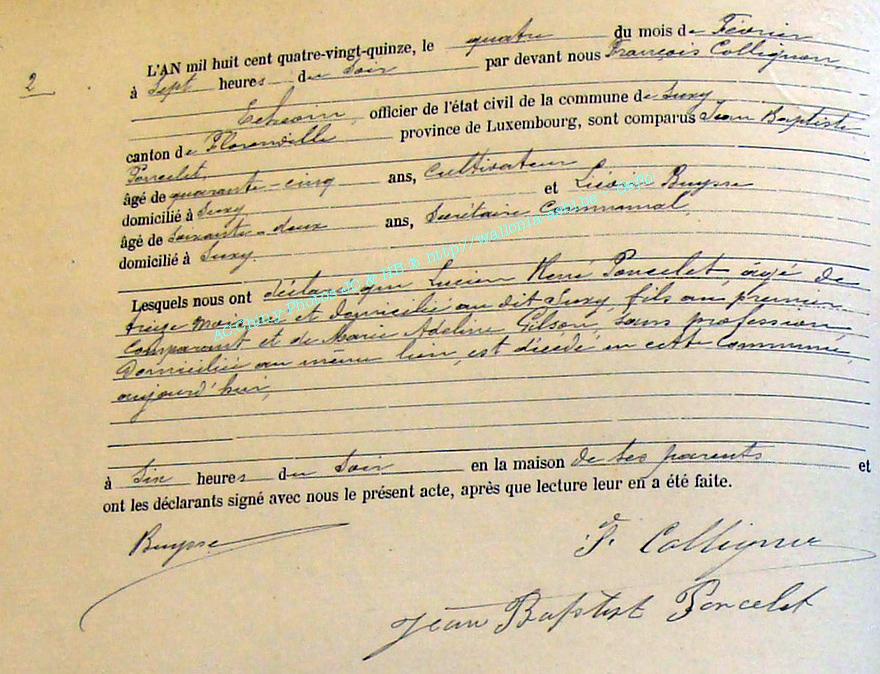 2
L'AN mil huit cent quatre-vingt-quinze, le quatre du mois de Février
à sept heures du soir par devant nous François Collignon,
Echevin, officier de l'état civil de la commune de Suxy
canton de Florenville province de Luxembourg, sont comparus Jean Baptiste
Poncelet,
âgé de quarante-cinq ans, Cultivateur
domicilié à Suxy et Liévin Buysse
âgé de soixante-deux ans, Secrétaire Communal,
domicilié à Suxy.
Lesquels nous ont déclaré que Lucien René Poncelet, âgé de
treize mois, né et domicilié au dit Suxy, fils au premier
Comparant et de Marie Adeline Gilson, sans profession,
Domiciliée au même lieu, est décédé en cette Commune,
aujourd'hui,
à six heures du soir en la maison de ses parents et
ont les déclarants signé avec nous le présent acte, après que lecture leur en a été faite.
Buysse
F. Collignon
Jean Baptist Poncelet